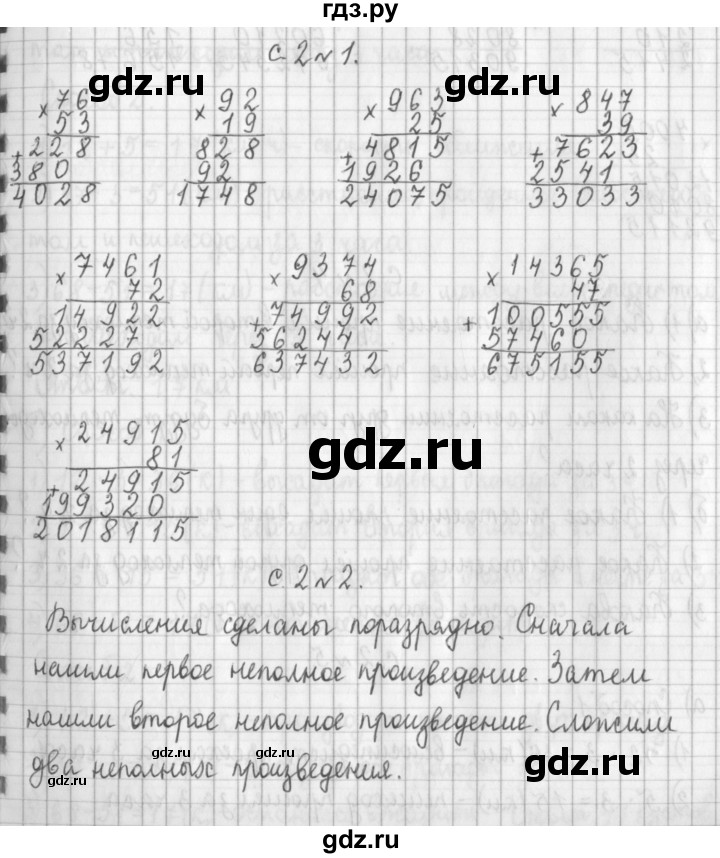 гдз.ру
с. 2 № 1.
× 76
53
+ 228
380
4028
× 92
19
828
92
1748
× 963
25
+ 4815
1926
24075
× 847
39
+ 7623
2541
33033
gdz.ru
gdz.ru
gdz.ru
gdz.ru
× 7461
72
14922
52227
537192
× 9374
68
+ 74992
56244
637432
× 14365
47
+ 100555
57460
675155
gdz.ru
× 24915
81
+ 24915
199320
2018115
gdz.ru
с. 2 № 2.
Вычисления сделаны поразрядно. Сначала
нашли первое неполное произведение. Затем
нашли второе неполное произведение. Сложили
два неполных произведения.
gdz.ru
gdz.ru
gdz.ru
gdz.ru